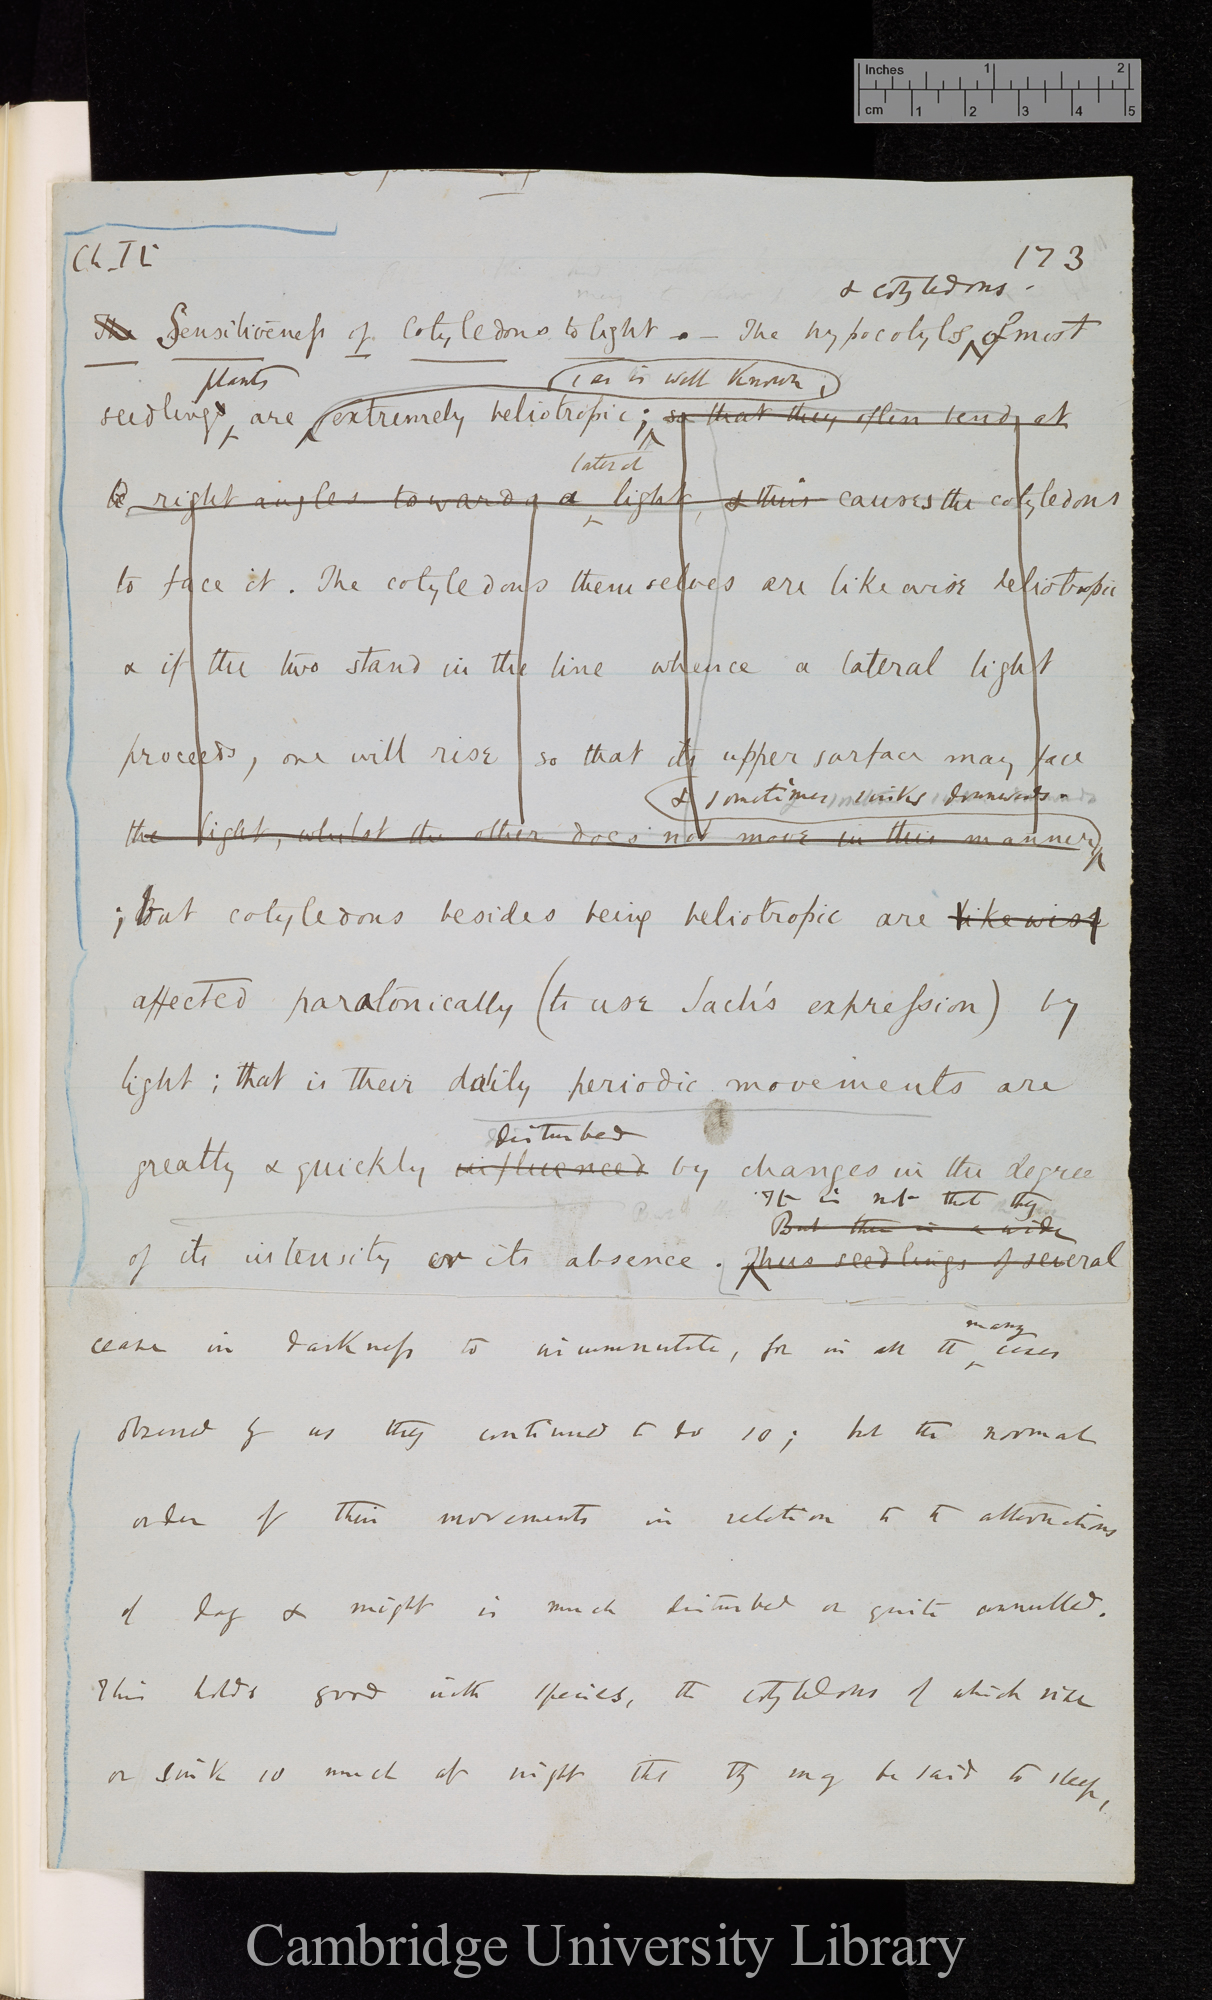 Inches 1 2
cm 1 2 3 4 5
Ch. II
173
& cotyledons.
The Sensitiveness of Cotyledons to light. — The hypocotyls of most
plants (as is well known)
seedlings are extremely heliotropic; so that they often bend at
lateral
right angles towards a light, & this causes the cotyledons
to face it. The cotyledons themselves are likewise heliotropic
& if the two stand in the line whence a lateral light
proceeds, one will rise so that its upper surface may face
& sometimes sinks downwards.
the light, whilst the other does not move in this manner
; but cotyledons besides being heliotropic are likewise
affected paratonically (to use Sach's expression) by
light; that is their daily periodic movements are
disturbed
greatly & quickly influenced by changes in the degree
It is not that they
But there is a wide
of its intensity or its absence. Thus seedlings of several
many
cease in darkness to circumnutate, for in all the cases
observed by us they continued to do so; but the normal
order of their movements in relation to the alternations
of day & night is much disturbed or quite annulled.
This holds good with species, the cotyledons of which rise
or sink so much at night that they may be said to sleep,
Cambridge University Library